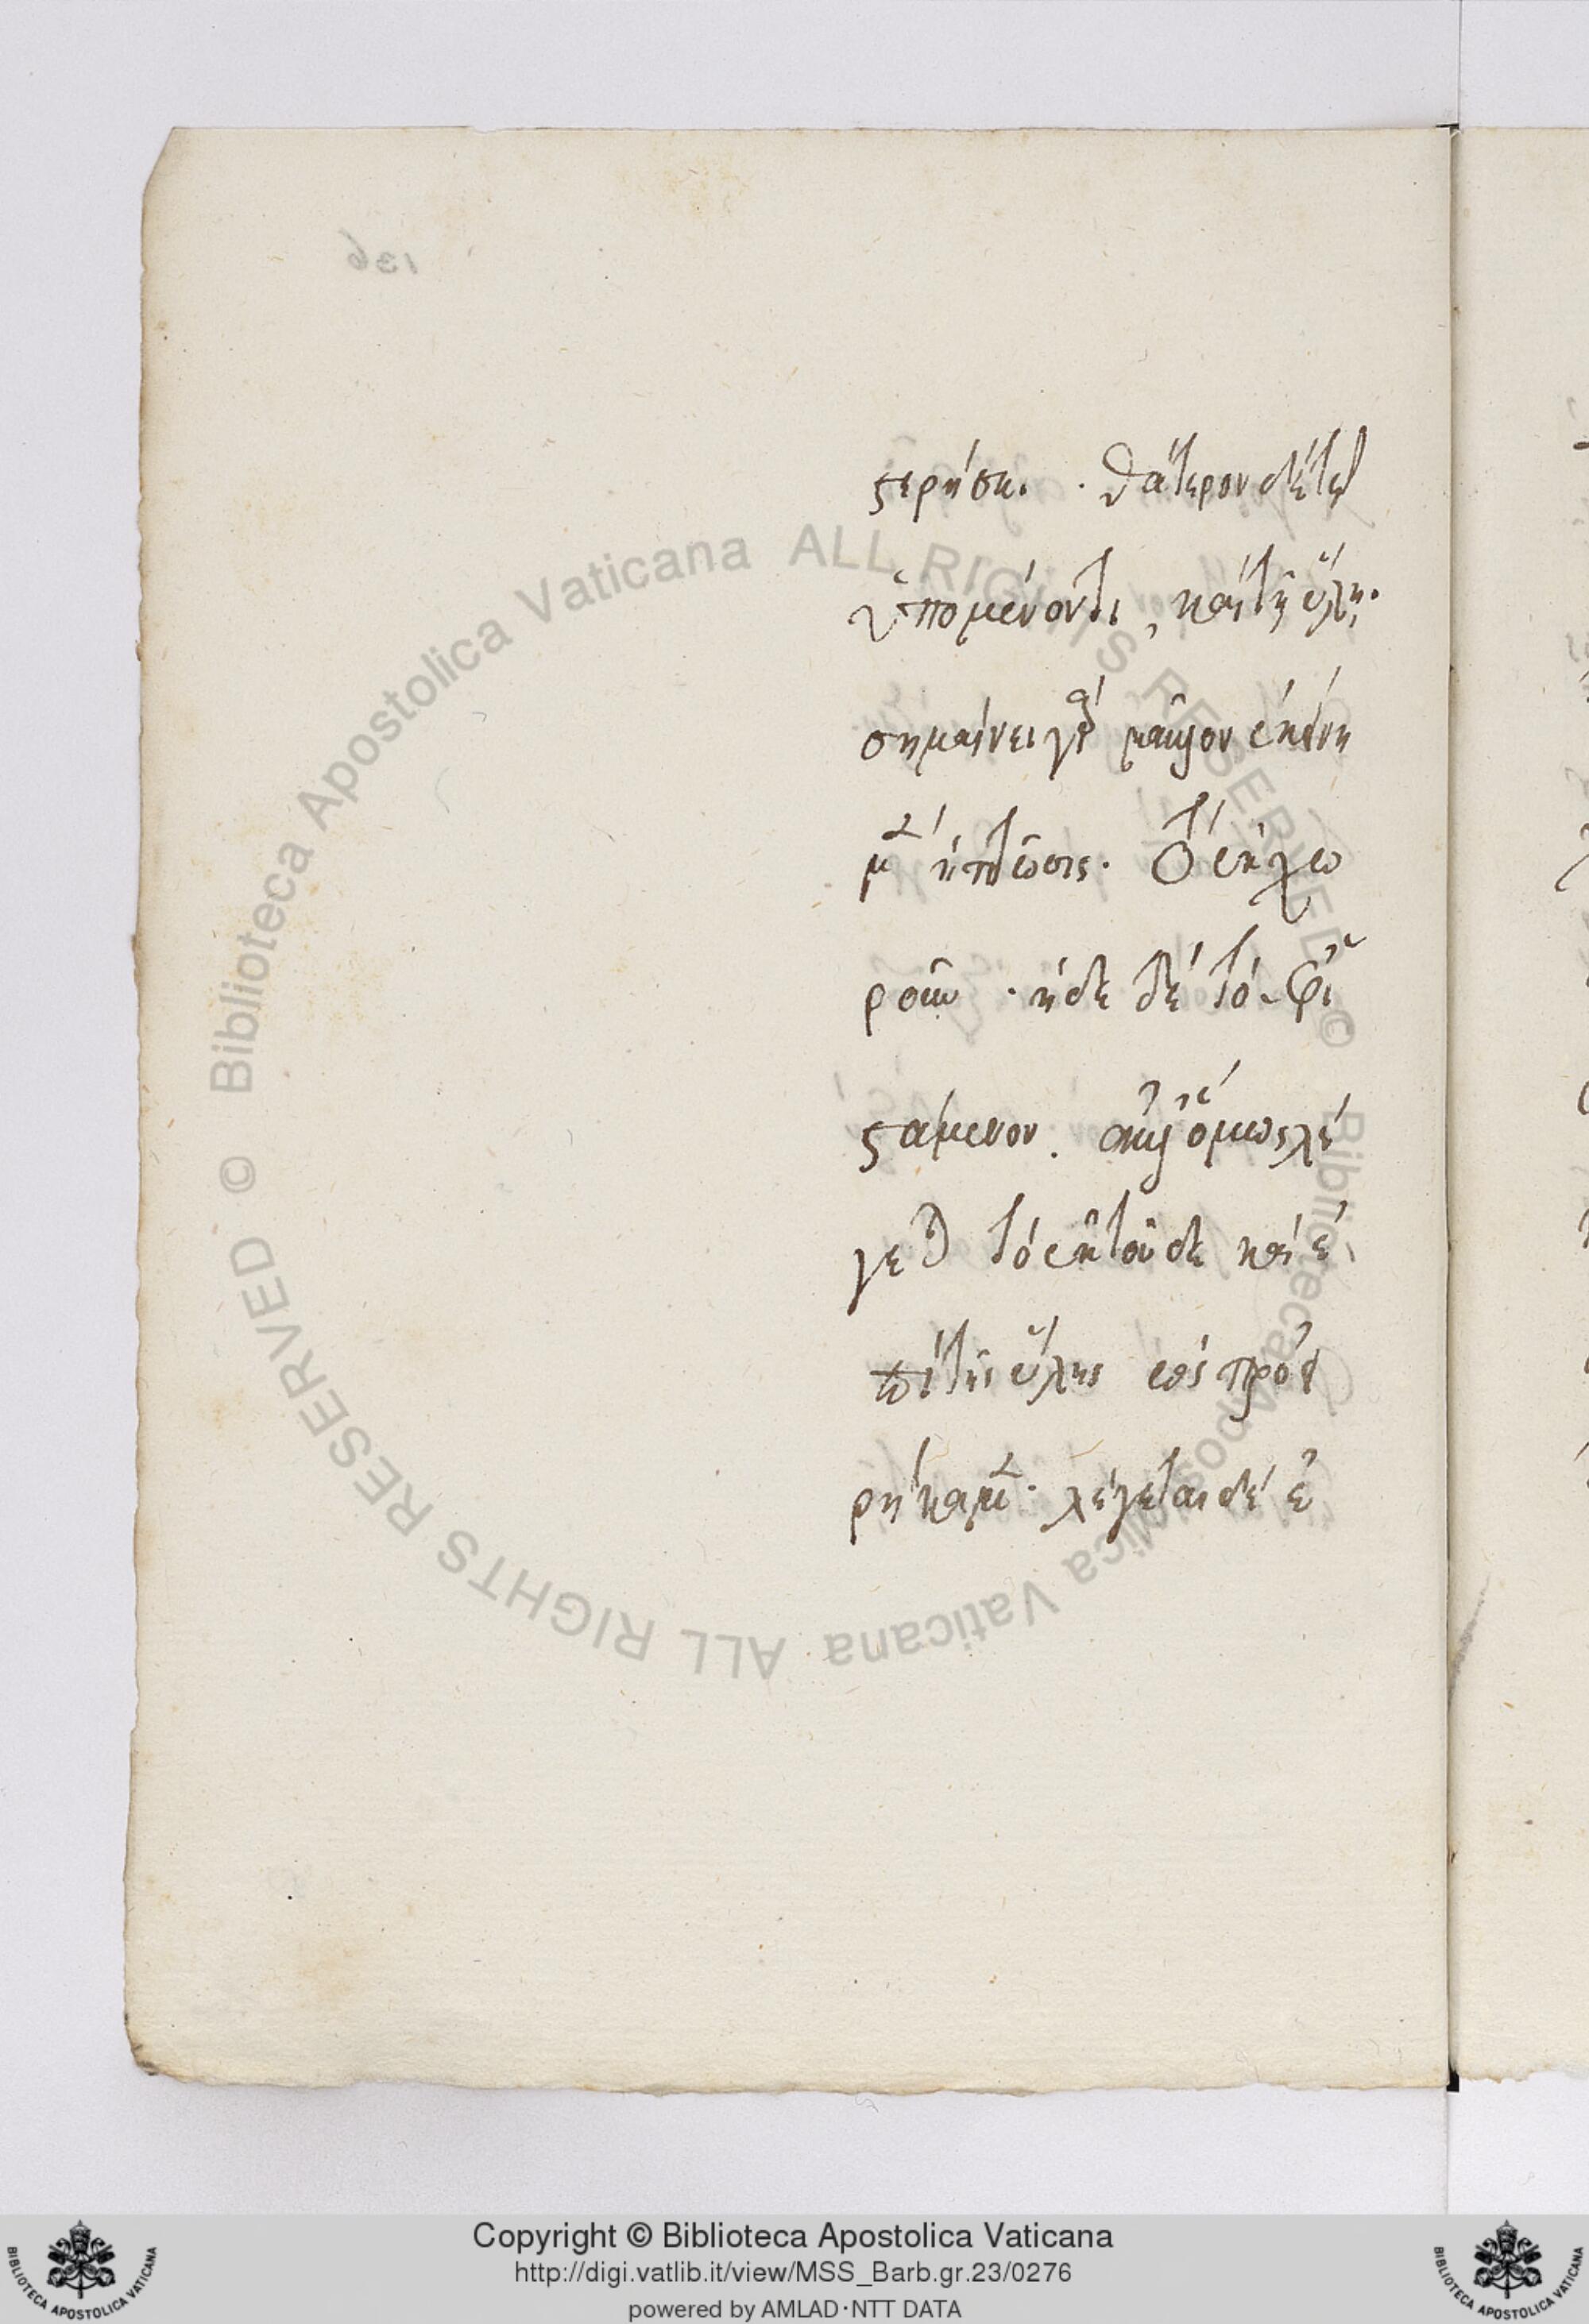 136
στερήσει. θάτερον δὲ τῷ
ὑπομένοντι, καὶ τῇ ὕλῃ.
σημαίνει γὰρ μᾶλλον ἐκεῖν
μὲν ἡ πτῶσις. τὸ ἐκ χω
ροῦν. ἡ δὲ δὲ τὸ
στάμενον. ἀλλ' ὅμως λέ
γεται τὸ ἐκ τοῦδε καὶ ἐ
πὶ τῆς ὕλης ὡς προ
ρήκαμεν. λέγεται δὲ ἐ
© Biblioteca Apostolica Vaticana ALL RIGHTS RESERVED © Biblioteca Apostolica Vaticana ALL RIGHTS RESERVED
Copyright © Biblioteca Apostolica Vaticana
http://digi.vatlib.it/view/MSS_Barb.gr.23/0276
powered by AMLAD·NTT DATA
BIBLIOTECA APOSTOLICA VATICANA
BIBLIOTECA APOSTOLICA VATICANA